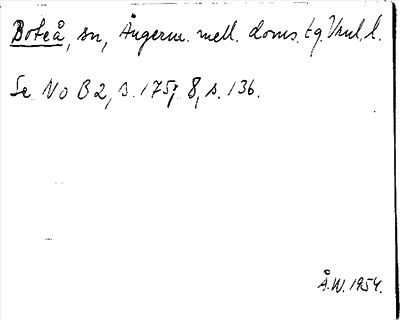 Boteå, sn, Ångerm. mell. doms. tg. Vnl. l.
Se NoB 2, s. 175; 8, s. 136.
Å.W. 1954.